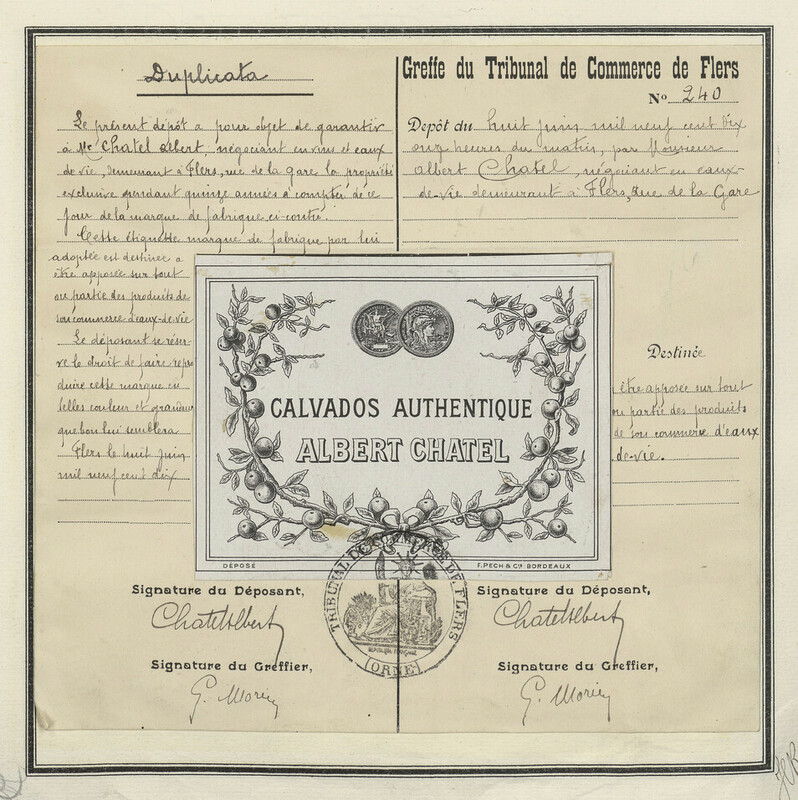 Duplicata
Le présent dépôt a pour objet de garantir
à Mr Chatel Albert, négociant en vins et eaux
de vie, demeurant à Flers, rue de la gare la propriété
exclusive pendant quinze années à compter de ce
jour de la marque de fabrique ci-contre.
Cette étiquette marque de fabrique par lui
adoptée est destinée a
être apposée sur tout
ou partie des produits de
son commerce d'eaux-de-vie
Le déposant se réser-
ve le droit de faire repro
duire cette marque en
telles couleur et grandeur
que bon lui semblera
Flers le huit Juin
mil neuf cent dix
Greffe du Tribunal de Commerce de Flers
No 240
Dépôt du huit juin mil neuf cent dix
onze heures du matin, par Monsieur
Albert Chatel, négociant en eaux-
de-vie demeurant à Flers, Rue de la Gare
Destinée
à être apposée sur tout
ou partie des produits
de son commerce d'eaux
de-vie.
CALVADOS AUTHENTIQUE
ALBERT CHATEL
DÉPOSÉ
F. PECH & Cie BORDEAUX
Signature du Déposant,
Chatel Albert
Signature du Greffier,
G. Morin
Signature du Déposant,
Chatel Albert
Signature du Greffier,
G. Morin
TRIBUNAL DE COMMERCE DE FLERS
REPUBLIQUE FRANÇAISE
(ORNE)